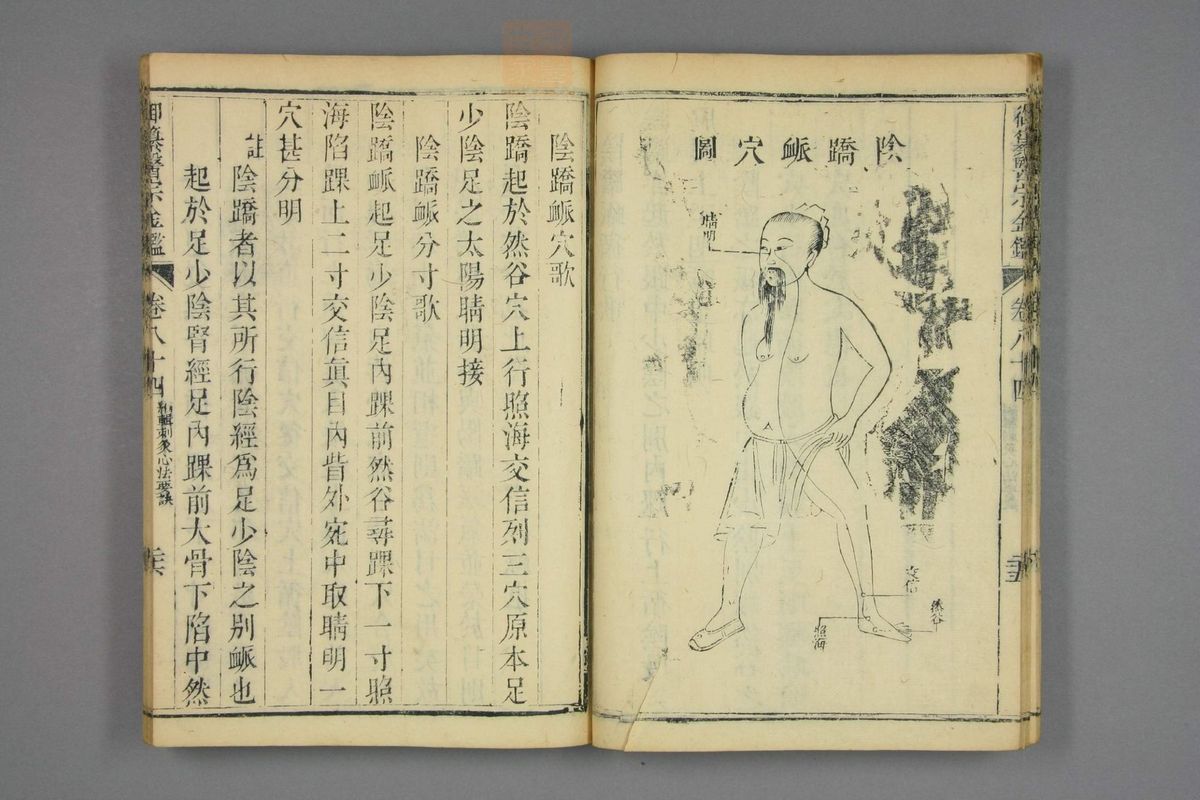 御纂醫宗金鑑
卷八十四
陰蹻脈穴圖
睛明
交信
然谷
照海
陰蹻脈穴歌
陰蹻起於然谷穴上行照海交信列三穴原本足
少陰足之太陽睛明接
陰蹻脈分寸歌
陰蹻脈起足少陰足內踝前然谷尋踝下一寸照
海陷踝上二寸交信真目內眥外宛中取睛明一
穴甚分明
註
陰蹻者以其所行陰經為足少陰之別脈也
起於足少陰腎經足內踝前大骨下陷中然
御纂醫宗金鑑
卷八十四
編輯刺灸心法要訣